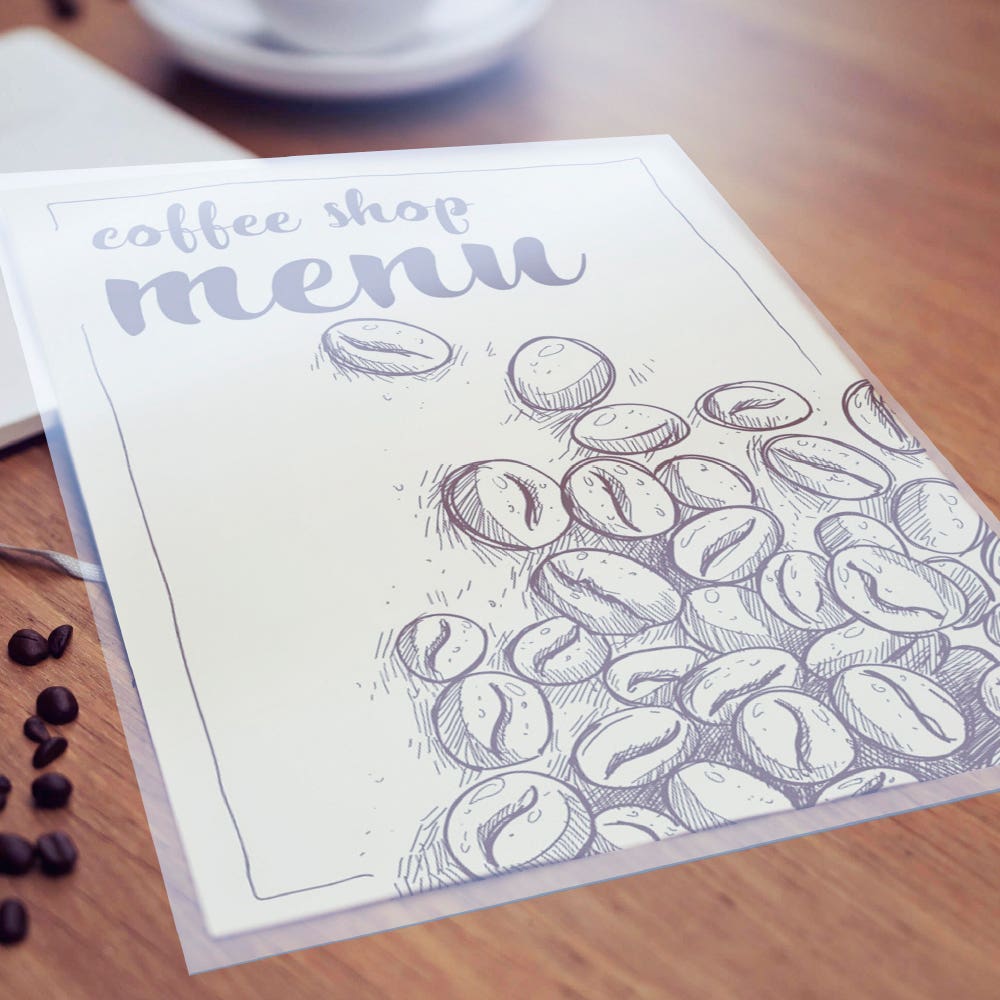 coffee shop
menu